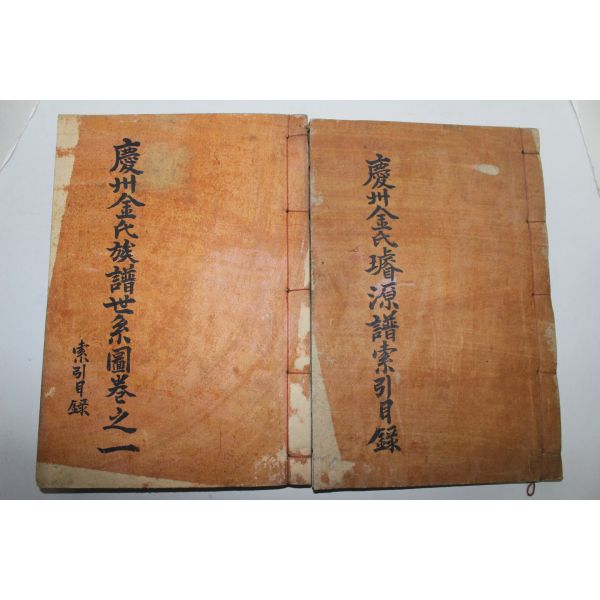 慶州金氏璿源譜索引目錄
慶州金氏族譜世系圖卷之一
索引目錄